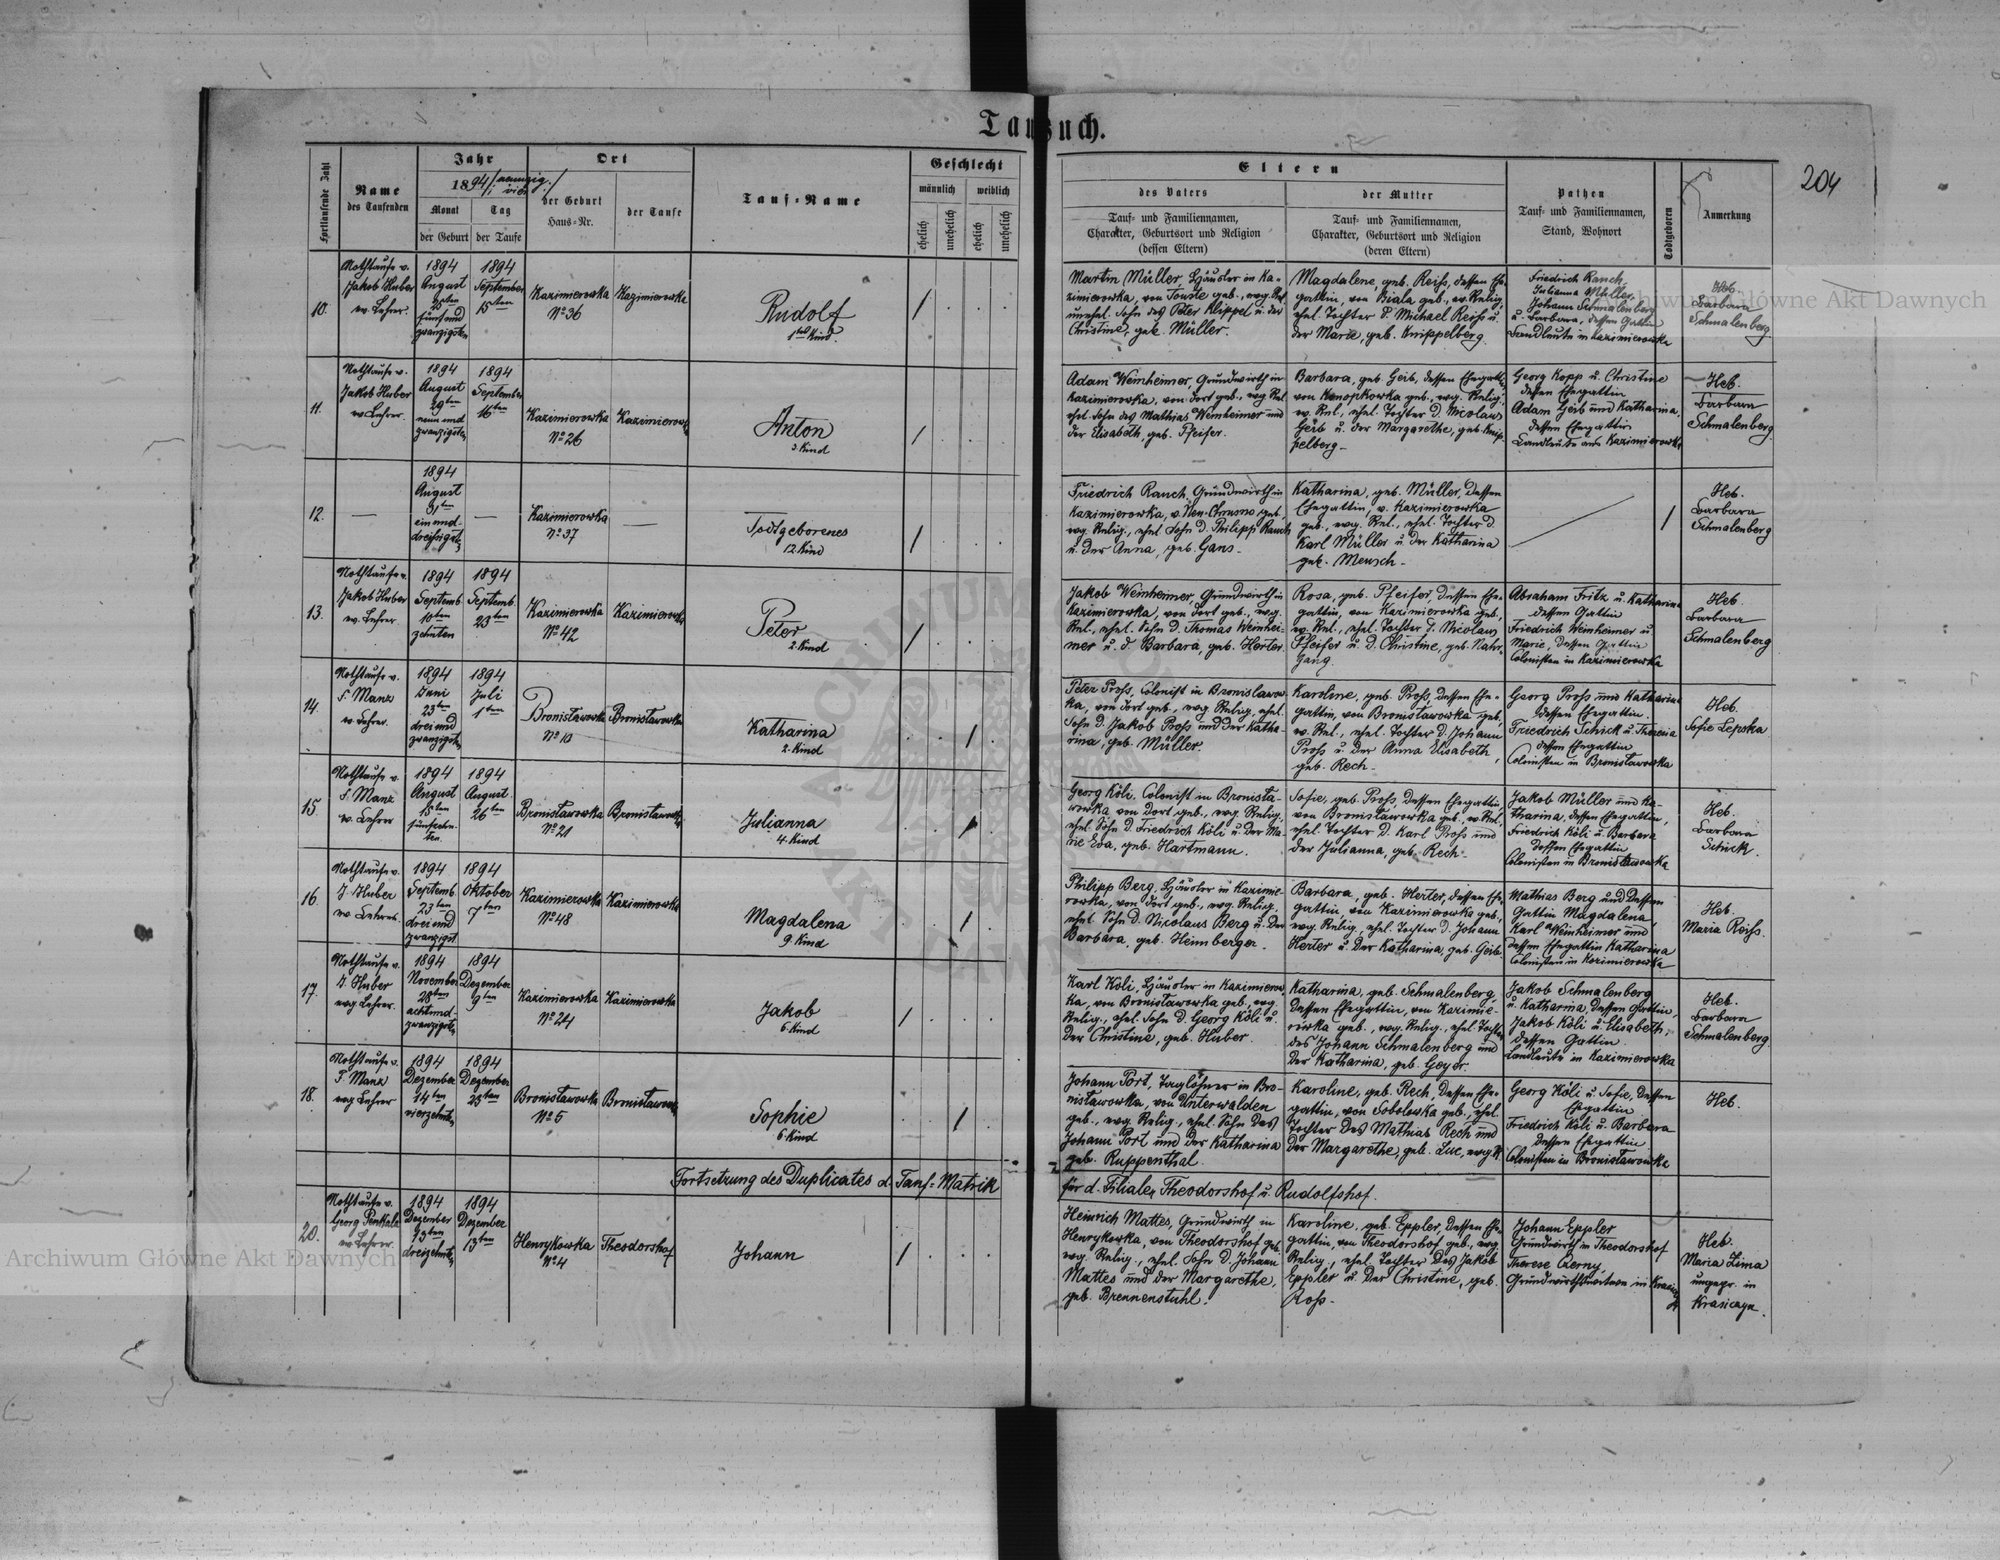 Taufbuch.
204
Fortlaufende Zahl
Name
des Taufenden
Jahr
1894 /: neunzig vier :/
Monat
Tag
der Geburt
der Taufe
Ort
der Geburt
Haus-Nr.
der Taufe
Tauf-Name
Geschlecht
männlich
weiblich
ehelich
unehelich
ehelich
unehelich
Eltern
des Vaters
Tauf- und Familiennamen,
Charakter, Geburtsort und Religion
(dessen Eltern)
der Mutter
Tauf- und Familiennamen,
Charakter, Geburtsort und Religion
(deren Eltern)
Pathen
Tauf- und Familiennamen,
Stand, Wohnort
Todtgeboren
Anmerkung
10.
Nothtaufe v.
Jakob Huber
ev. Lehrer.
1894
August
25ten
fünf und
zwanzigsten
1894
September
15ten
Kazimierowka
No 36
Kazimierowka
Rudolf
1tes Kind.
Martin Müller, Häusler in Ka-
zimierowka, von Touste geb., evg. Rel.
unehl. Sohn des Peter Klippel u. der
Christine, geb. Müller.
Magdalene, geb. Reiß, dessen Ehe-
gattin, von Biala geb., ev. Relig.
ehel. Tochter d. Michael Reiß u.
der Marie, geb. Knippelberg.
Friedrich Rauch,
Julianna Müller,
Johann Schmalenberg
u. Barbara, dessen Gattin
Landleute in Kazimierowka
Heb.
Barbara
Schmalenberg
11.
Nothtaufe v.
Jakob Huber
ev Lehrer.
1894
August
29ten
neun und
zwanzigsten
1894
September
16ten
Kazimierowka
No 26
Kazimierowka
Anton
3. Kind
Adam Weinheimer, Grundwirth in
Kazimierowka, von dort geb., evg Rel
ehel. Sohn des Mathias Weinheimer und
der Elisabeth, geb. Pfeifer.
Barbara, geb. Geib, dessen Ehegattin
von Konopkowka geb., evg. Relig.
ev. Rel., ehel. Tochter d. Nicolaus
Geib u. der Margarethe, geb. Knip-
pelberg -
Georg Kopp u. Christine
dessen Ehegattin
Adam Geib und Katharina,
dessen Ehegattin
Landleute aus Kazimierowka
Heb.
Barbara
Schmalenberg
12.
1894
August
31ten
ein und
dreißigsten
Kazimierowka
No 37
Todtgeborenes
12. Kind
Friedrich Rauch, Grundwirth in
Kazimierowka, v. Neu-Chrusno geb.
evg. Relig., ehel. Sohn d. Philipp Rauch
u. der Anna, geb. Gans -
Katharina, geb. Müller, dessen
Ehegattin, v. Kazimierowka
geb., evg. Rel., ehel. Tochter d.
Karl Müller u. der Katharina
geb. Mensch -
Heb.
Barbara
Schmalenberg
13.
Nothtaufe v.
Jakob Huber
ev. Lehrer
1894
Septemb.
10ten
zehnten
1894
Septemb.
23ten
Kazimierowka
No 42
Kazimierowka
Peter
2. Kind
Jakob Weinheimer, Grundwirth in
Kazimierowka, von dort geb., evg.
Rel., ehel. Sohn d. Thomas Weinhei-
mer u. d. Barbara, geb. Herter.
Rosa, geb. Pfeifer, dessen Ehe-
gattin, von Kazimierowka geb,
ev. Rel., ehel. Tochter d. Nicolaus
Pfeifer u. d. Christine, geb. Nahr-
gang.
Abraham Fritz u. Katharina
dessen Gattin
Friedrich Weinheimer u
Marie, dessen Gattin
Colonisten in Kazimierowka
Heb.
Barbara
Schmalenberg
14.
Nothtaufe v.
F. Manz
ev. Lehrer.
1894
Juni
23ten
drei und
zwanzigsten
1894
Juli
1ten
Bronislawowka
No 10
Bronislawowka
Katharina
2. Kind
Peter Proß, Colonist in Bronislawow-
ka, von dort geb., evg. Relig. ehel.
Sohn d. Jakob Proß und der Katha-
rina, geb. Müller.
Karoline, geb. Proß, dessen Ehe-
gattin, von Bronislawowka geb,
ev. Rel., ehel. Tochter d. Johann
Proß u. der Anna Elisabeth,
geb. Rech -
Georg Proß und Katharina
dessen Ehegattin.
Friedrich Schick u. Theresia
dessen Ehegattin
Colonisten in Bronislawowka
Heb.
Sofie Lepska
15
Nothtaufe v.
F. Manz
ev. Lehrer
1894
August
15ten
fünfzehn-
ten.
1894
August
26ten
Bronislawowka
No 21
Bronislawowka
Julianna
4. Kind
Georg Köli, Colonist in Bronisla-
wowka von dort geb., evg. Relig.
ehel. Sohn d. Friedrich Köli u. der Ma-
rie Eva, geb. Hartmann.
Sofie, geb. Proß, dessen Ehegattin,
von Bronislawowka geb., ev Rel.
ehel. Tochter d. Karl Proß und
der Julianna, geb. Rech -
Jakob Müller und Ka-
tharina, dessen Ehegattin,
Friedrich Köli u. Barbara
dessen Ehegattin
Colonisten in Bronislawowka
Heb.
Barbara
Schick.
16.
Nothtaufe v.
J. Huber
ev Lehrer.
1894
Septemb.
23ten
drei und
zwanzigst.
1894
Oktober
7ten
Kazimierowka
No 48
Kazimierowka
Magdalena
9. Kind
Philipp Berg, Häusler in Kazimie-
rowka, von dort geb., evg. Relig.
ehel. Sohn d. Nicolaus Berg u. der
Barbara, geb. Heimberger.
Barbara, geb. Herter, dessen Ehe-
gattin, von Kazimierowka geb.,
evg. Relig., ehel. Tochter d. Johann
Herter u. der Katharina, geb. Geib.
Mathias Berg und dessen
Gattin Magdalena,
Karl Weinheimer und
dessen Ehegattin Katharina
Colonisten in Kazimierowka
Heb.
Maria Reiß.
17.
Nothtaufe v.
J. Huber
evg Lehrer.
1894
November
28ten
acht und
zwanzigsten
1894
Dezember
9ten
Kazimierowka
No 24
Kazimierowka
Jakob
6. Kind
Karl Köli, Häusler in Kazimierow-
ka, von Bronislawowka geb., evg.
Relig., ehel. Sohn d. Georg Köli u.
der Christine, geb. Huber.
Katharina, geb. Schmalenberg,
dessen Ehegattin, von Kazimie-
rowka geb., evg. Relig., ehel. Tochter
des Johann Schmalenberg und
der Katharina, geb. Geyer.
Jakob Schmalenberg
u. Katharina dessen Gattin,
Jakob Köli u. Elisabeth,
dessen Gattin.
Landleute in Kazimierowka
Heb.
Barbara
Schmalenberg
18.
Nothtaufe v.
F. Manz
evg Lehrer
1894
Dezember
14ten
vierzehnten
1894
Dezember
23ten
Bronislawowka
No 5
Bronislawowka
Sophie
6. Kind
Johann Port, Taglöhner in Bro-
nislawowka, von Unterwalden
geb., evg. Relig., ehel. Sohn des
Johann Port und der Katharina
geb. Ruppenthal.
Karoline, geb. Rech, dessen Ehe-
gattin, von Sobolowka geb., ehel.
Tochter des Mathias Rech und
der Margarethe, geb. Luc, evg R.
Georg Köli u. Sofie, dessen
Ehegattin
Friedrich Köli u. Barbara
dessen Ehegattin
Colonisten in Bronislawowka
Heb.
Fortsetzung des Duplicates d. Tauf-Matrik
für d. Filialen Theodorshof u. Rudolfshof.
20.
Nothtaufe v.
Georg Penkala
ev Lehrer.
1894
Dezember
13ten
dreizehnten
1894
Dezember
13ten
Henrykowka
No 4
Theodorshof
Johann
Heinrich Mattes, Grundwirth in
Henrykowka, von Theodorshof geb.
evg. Relig., ehel. Sohn d. Johann
Mattes und der Margarethe,
geb. Brennenstuhl.
Karoline, geb. Eppler, dessen Ehe-
gattin, von Theodorshof geb., evg
Relig., ehel. Tochter des Jakob
Eppler u. der Christine, geb.
Roß -
Johann Eppler
Grundwirth in Theodorshof
Therese Czerny,
Heb.
Maria Zima
ungepr. in
Krasiczyn.
Archiwum Główne Akt Dawnych
Archiwum Główne Akt Dawnych